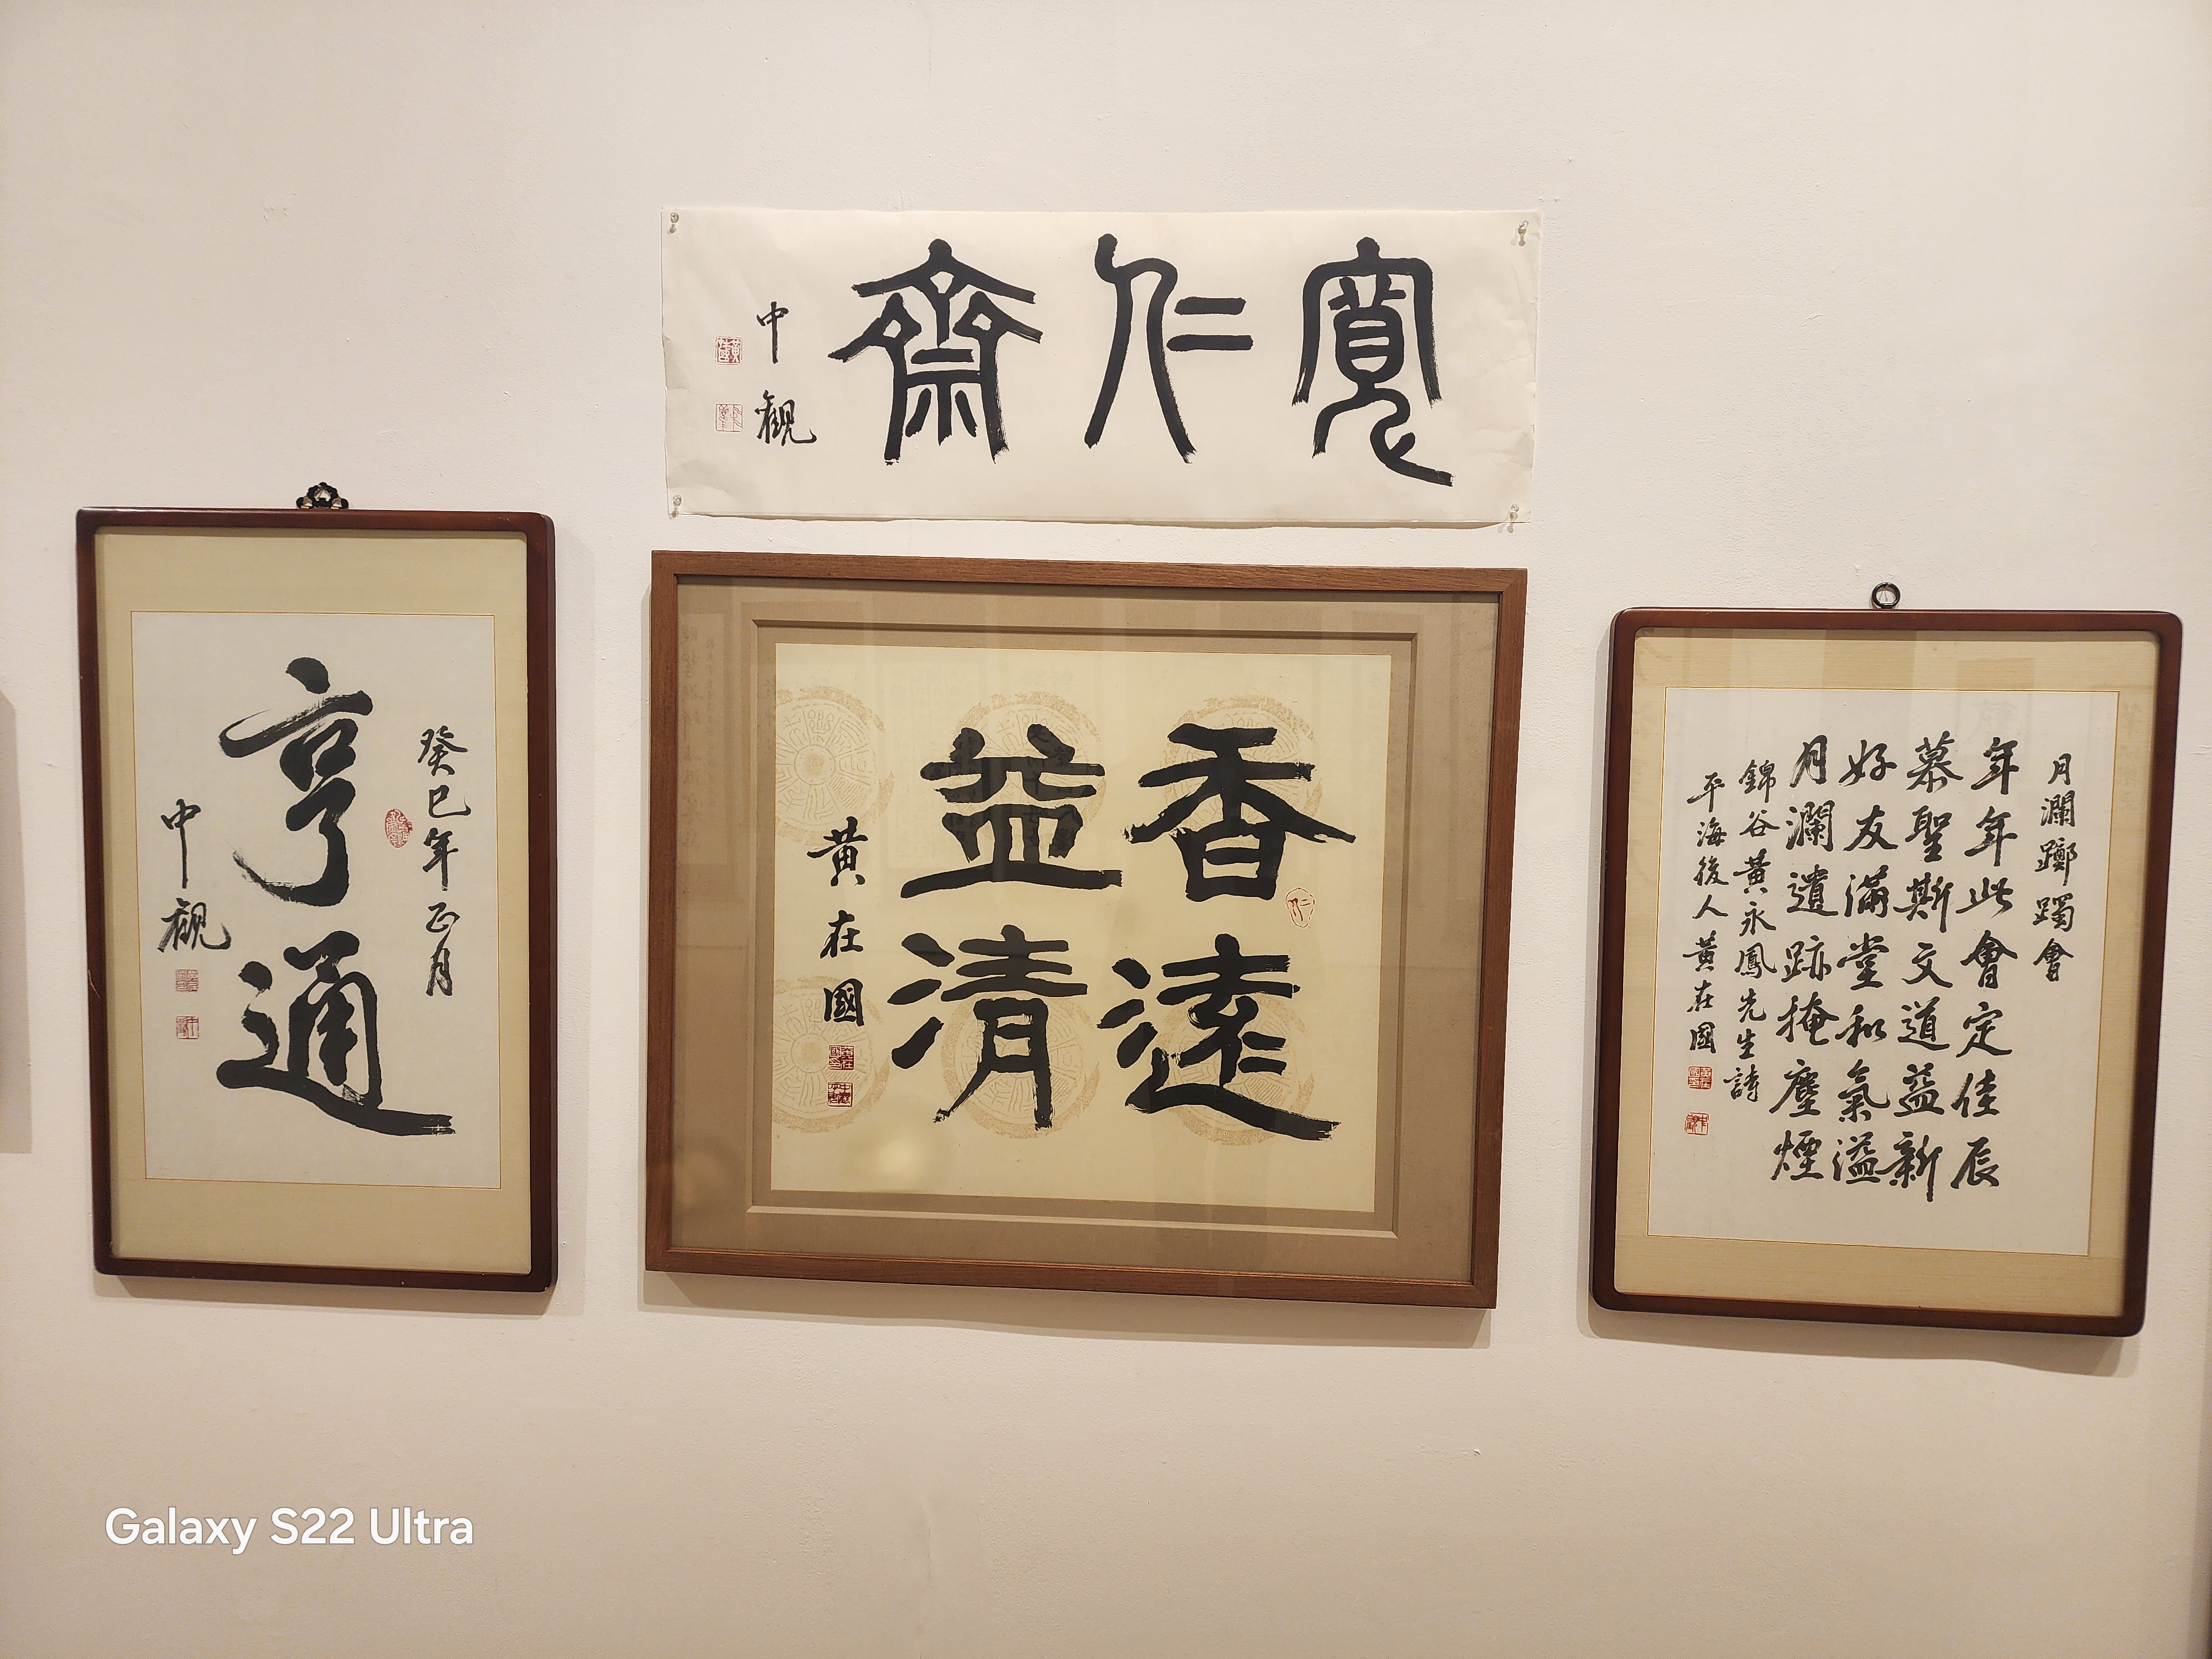 寬仁齋
中觀
癸巳年正月
亨通
中觀
香遠
益清
黃在國
月瀾躑躅會
年年此會定佳辰
慕聖斯文道益新
好友滿堂和氣溢
月瀾遺跡掩塵煙
錦谷黃永鳳先生詩
平海後人黃在國
Galaxy S22 Ultra